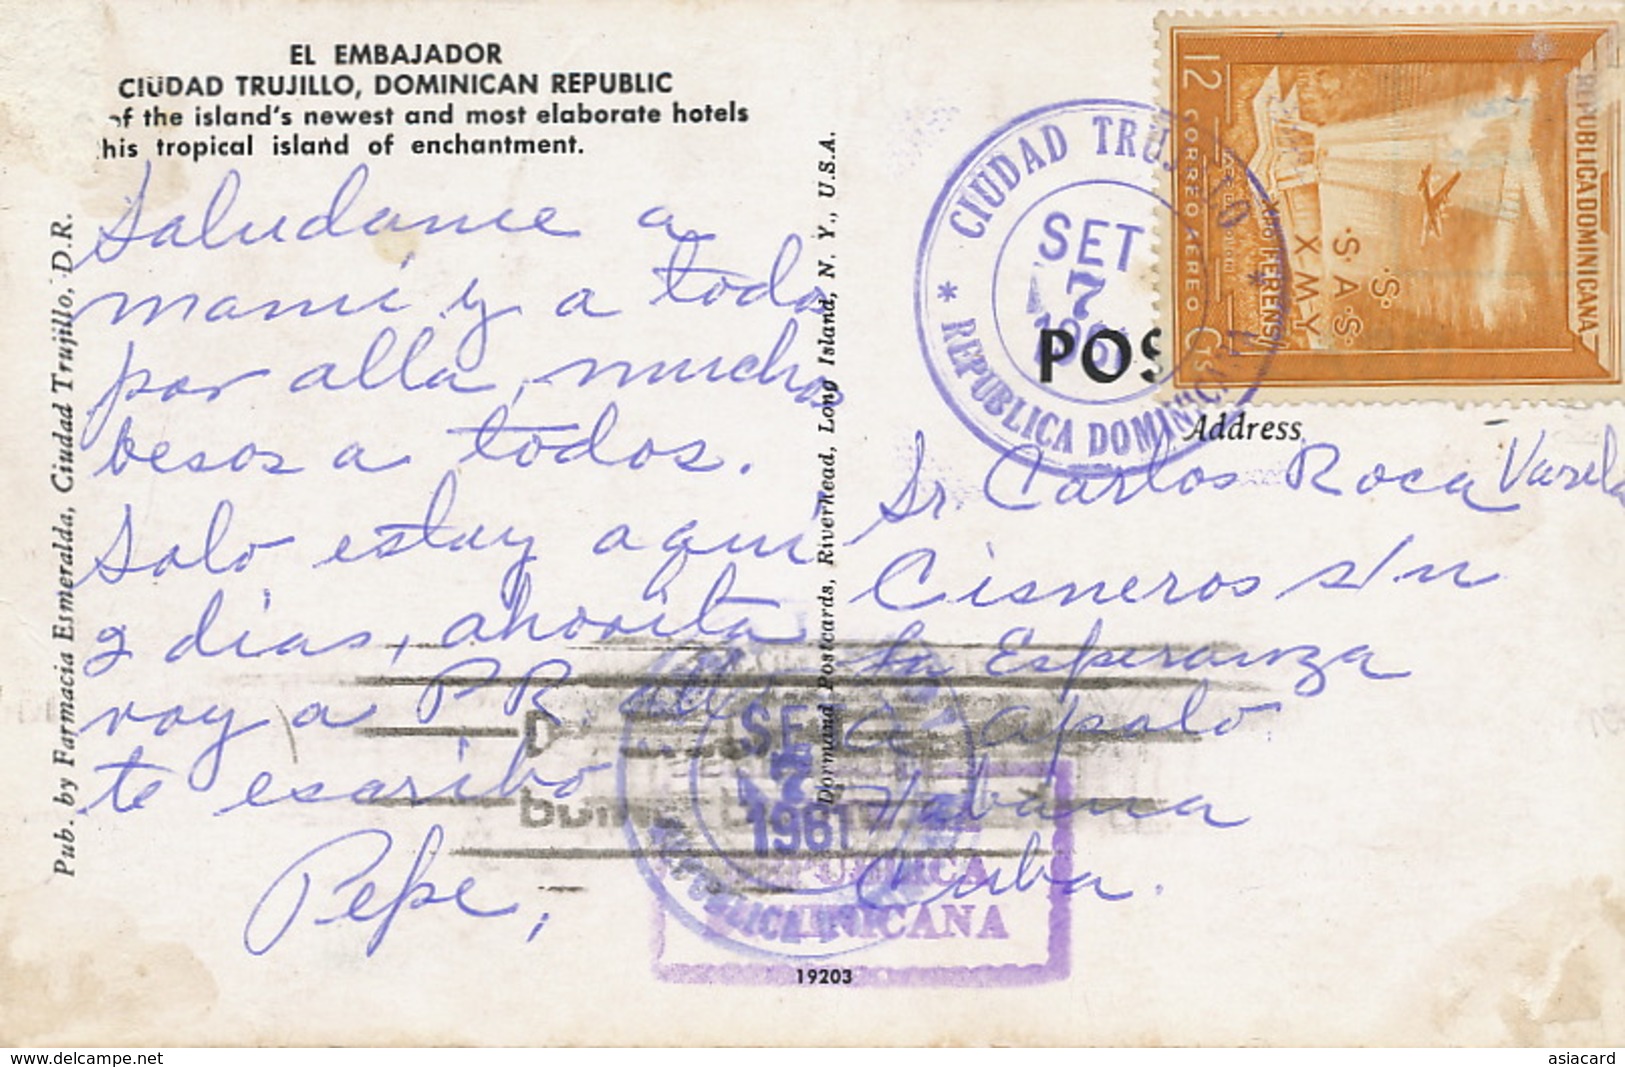 EL EMBAJADOR
CIUDAD TRUJILLO, DOMINICAN REPUBLIC
of the island's newest and most elaborate hotels
his tropical island of enchantment.
Saludame a
mami y a todos
por alla, muchos
besos a todos.
Solo estoy aqui
2 dias, ahorita
voy a PR. alli
te escribo
Pepe,
Pub. by Farmacia Esmeralda, Ciudad Trujillo, D.R.
Dormand Postcards, Riverhead, Long Island, N. Y., U.S.A.
POS
Address
Sr. Carlos Roca Varela
Cisneros s/n
La Esperanza
Apolo
Habana
Cuba.
CIUDAD TRUJILLO
SET
7
1961
* REPUBLICA DOMINICANA *
REPUBLICA DOMINICANA
12 CORREO AEREO Cts
S.
S.A.S.
XMY
SET
7
1961
REPUBLICA
REPUBLICA
DOMINICANA
19203
www.delcampe.net
asiacard